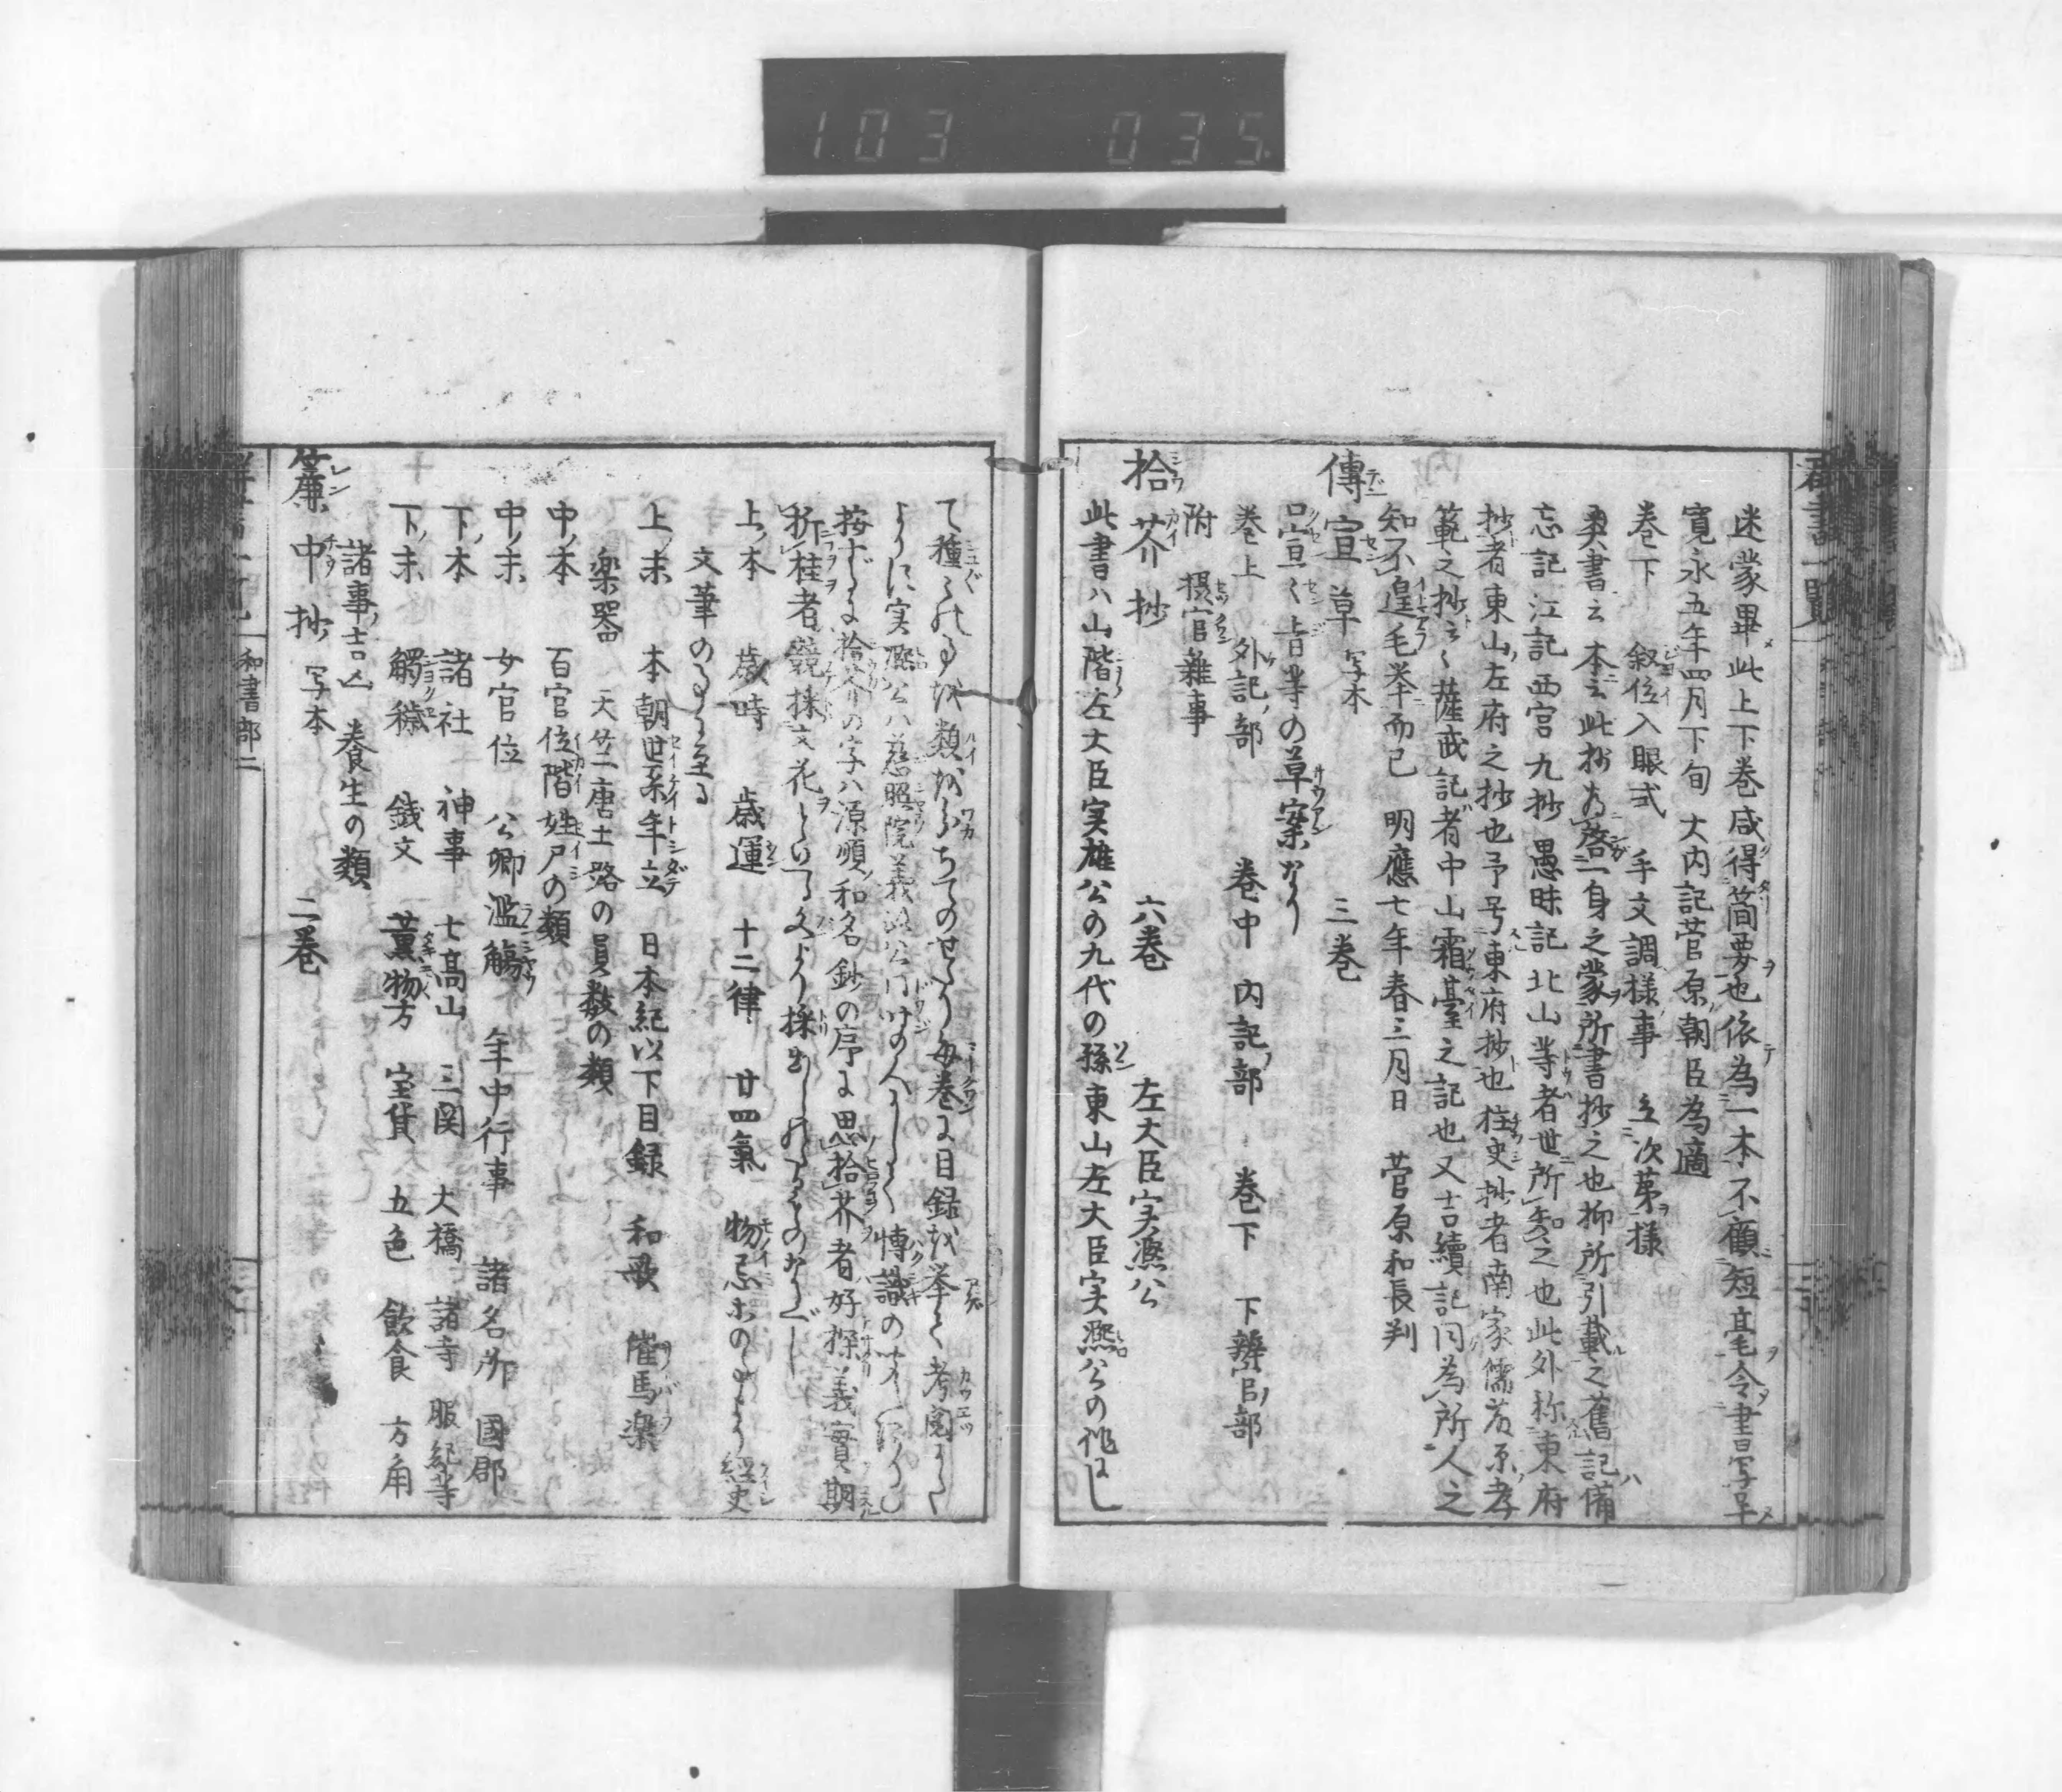 103 035
群書一覧
迷蒙畢此上下巻咸得簡要也依為一本不顧短毫令書写早
寛永五年四月下旬大内記菅原朝臣為適
巻下 叙位入眼式 手文調様事 立次第様
奥書云本云此抄為啓一身之蒙所書抄之也抑所引載之舊記備
忘記江記西宮九抄愚昧記北山等者世所知之也此外称東府
抄者東山左府之抄也予号東府抄也柱史抄者南家儒藤原孝
範之抄云々薩戒記者中山霜臺之記也又吉續記同為所人之
知不遑毛挙而已 明應七年春三月日 菅原和長判
傳宣草 写本 三巻
口宣々旨等の草案なり
巻上 外記部 巻中 内記部 巻下 下辨官部
附 摂官雜事
拾芥抄 六巻 左大臣実熈公
此書ハ山階左大臣実雄公の九代の孫東山左大臣実熈公の作にし
て種々の事を類をわかちてのせたり毎巻に目録を挙て考閲
按ずるに拾芥の字ハ源順和名鈔の序に思拾芥者好探義實期
折桂者競採文花といへる文より採出しのなるべし
上本 歳時 歳運 十二律 廿四氣 物忌 経史
文筆の事に至る
上末 本朝世系年立 日本紀以下目録 和歌 催馬楽
楽器 天竺唐土路の員数の類
中本 百官位階姓尸の類
中末 女官位 公卿濫觴 年中行事 諸名所 國郡
下本 諸社 神事 七高山 三関 大橋 諸寺 服紀等
下末 觸穢 銭文 薫物方 宝貨 五色 飲食 方角
諸事吉凶 養生の類
簾中抄 写本 二巻
和書部二